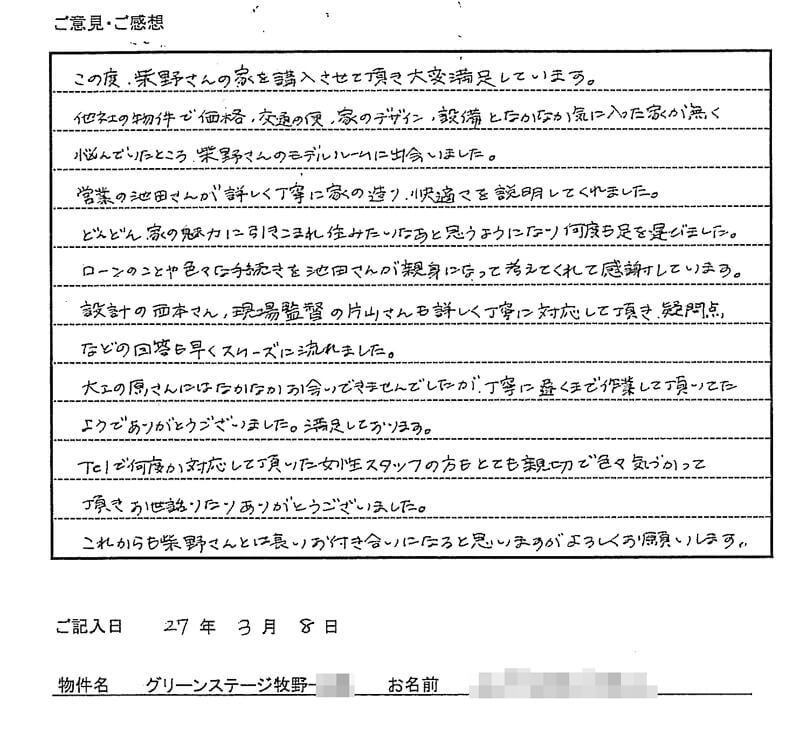 ご意見・ご感想
この度、柴野さんの家を購入させて頂き大変満足しています。
他社の物件で価格、交通の便、家のデザイン、設備となかなか気に入った家が無く
悩んでいたところ、柴野さんのモデルルームに出会いました。
営業の池田さんが詳しく丁寧に家の造り、快適さを説明してくれました。
どんどん家の魅力に引きこまれ住みたいなあと思うようになり何度も足を運びました。
ローンのことや色々な手続きを池田さんが親身になって考えてくれて感謝しています。
設計の西本さん、現場監督の片山さんも詳しく丁寧に対応して頂き、疑問点
などの回答も早くスムーズに流れました。
大工の原さんにはなかなかお会いできませんでしたが、丁寧に遅くまで作業して頂いてた
ようでありがとうございました。満足しております。
Telで何度か対応して頂いた女性スタッフの方もとても親切で色々気づかって
頂きお世話になりありがとうございました。
これからも柴野さんとは長いお付き合いになると思いますがよろしくお願いします。
ご記入日 27年 3月 8日
物件名 グリーンステージ牧野 お名前